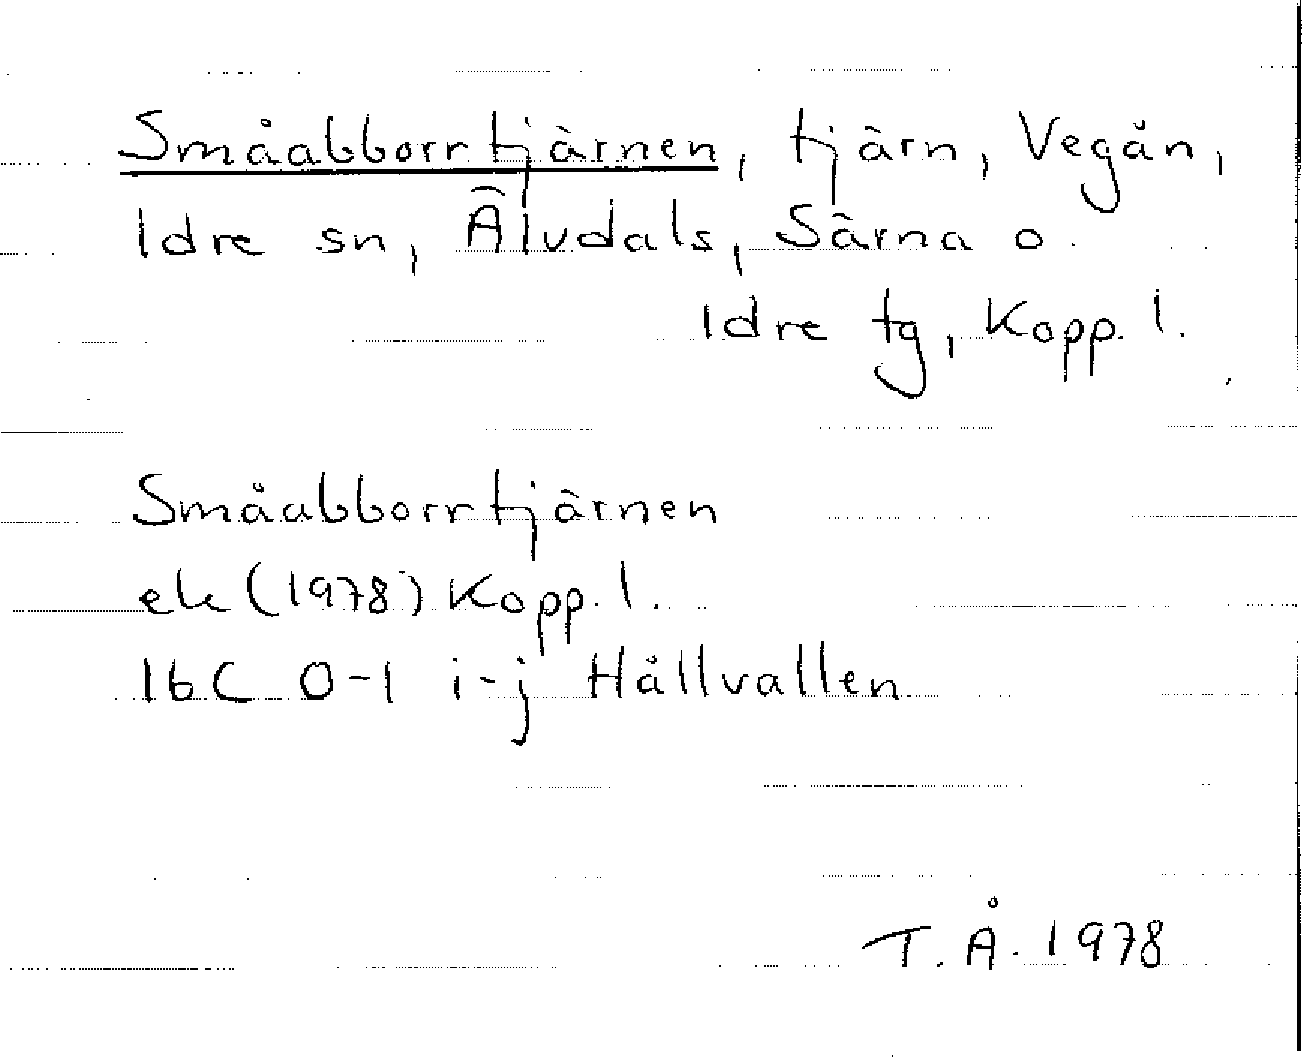 Småabborrtjärnen, tjärn, Vegån,
Idre sn, Älvdals, Särna o.
Idre tg, Kopp. l.
Småabborrtjärnen
ek (1978) Kopp. l.
16C 0-1 i-j Hållvallen
T. Å. 1978